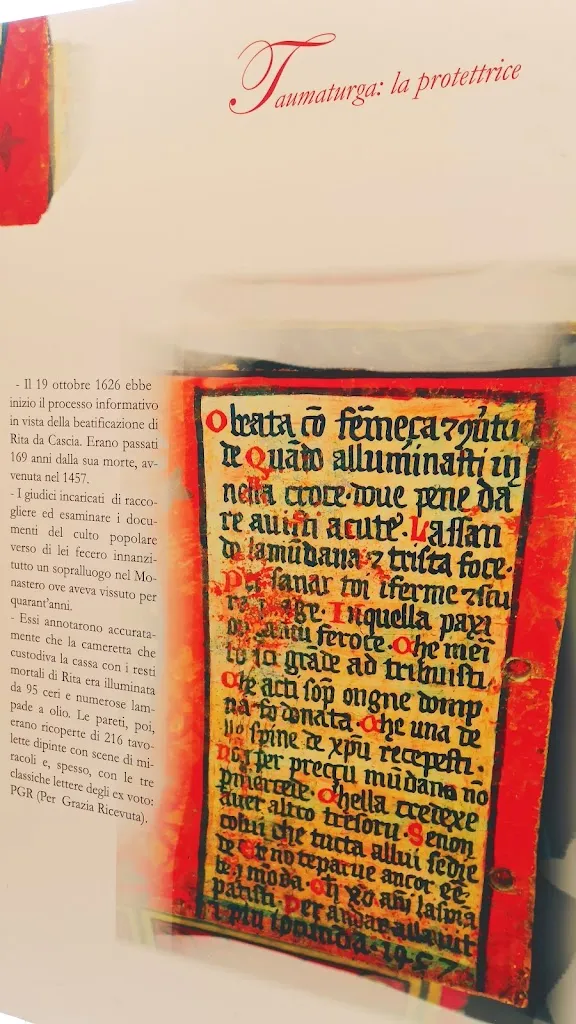 Taumaturga: la protettrice
- Il 19 ottobre 1626 ebbe
inizio il processo informativo
in vista della beatificazione di
Rita da Cascia. Erano passati
169 anni dalla sua morte, av-
venuta nel 1457.
- I giudici incaricati di racco-
gliere ed esaminare i docu-
menti del culto popolare
verso di lei fecero innanzi-
tutto un sopralluogo nel Mo-
nastero ove aveva vissuto per
quarant'anni.
- Essi annotarono accurata-
mente che la cameretta che
custodiva la cassa con i resti
mortali di Rita era illuminata
da 95 ceri e numerose lam-
pade a olio. Le pareti, poi,
erano ricoperte di 216 tavo-
lette dipinte con scene di mi-
racoli e, spesso, con le tre
classiche lettere degli ex voto:
PGR (Per Grazia Ricevuta).
O beata cō fēmeça
te Quādo alluminasti in
nella croce·doue pene da
re auisti acute· Lassan
do lamūdana & trista foce·
sanar toi iferme
Inquella paxi
feroce· Che mei
grāde ad tribuisti
Che acti sop ongne domp
na fo donata· Che una de
llo spine de xpū recepesti·
per preççu mūdano nō
Chella credexe
auer altro tresoru· Senon
colui che tucta allui sedie
de no te parue ancor
moda·
patisti· Per andar alla
1457